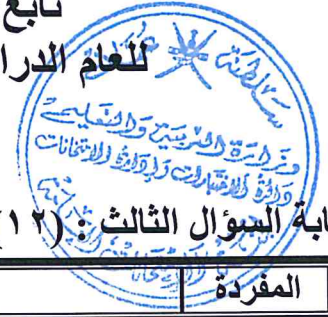 تابع
للعام الدرا
سلطنة عمان
وزارة التربية والتعليم
دائرة الاختبارات وإدارة الامتحانات
ابة السؤال الثالث : (١٢)
المفردة